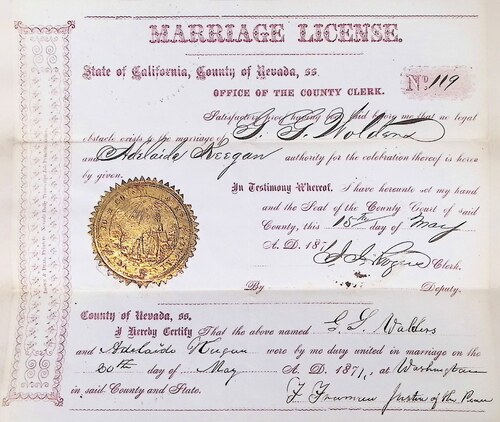 MARRIAGE LICENSE.
State of California, County of Nevada, ss.
No. 119
OFFICE OF THE COUNTY CLERK.
Satisfactory proof having been made before me that no legal
obstacle exists to the marriage of G. G. Woldens
and Adelaide Keegan authority for the celebration thereof is hereby
by given.
In Testimony Whereof, I have hereunto set my hand
and the Seal of the County Court of said
County, this 15th day of May
A. D. 187
Clerk.
By Deputy.
County of Nevada, ss.
I Hereby Certify That the above named G. G. Walders
and Adelaide Keegan were by me duly united in marriage on the
20th day of May A. D. 1871, at Washington
in said County and State.
Justice of the Peace